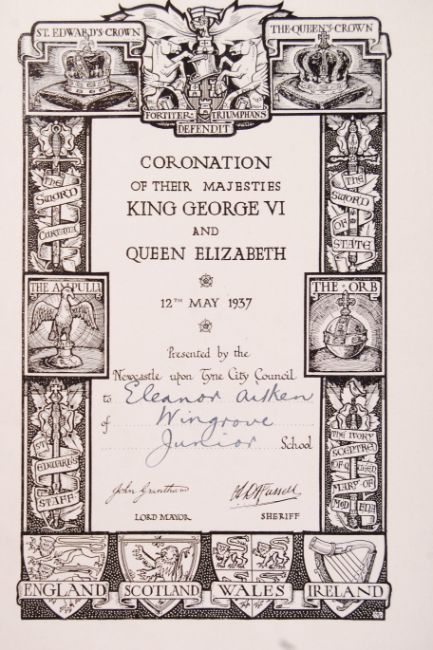 ST. EDWARD'S CROWN
THE QUEEN'S CROWN
FORTITER TRIUMPHANS
DEFENDIT
CORONATION
OF THEIR MAJESTIES
KING GEORGE VI
AND
QUEEN ELIZABETH
12TH MAY 1937
Presented by the
Newcastle upon Tyne City Council
to Eleanor Aitken
of Wingrove
Junior School
LORD MAYOR
SHERIFF
THE
SWORD
CURTANA
THE AMPULLA
ST.
EDWARD'S
STAFF
THE
SWORD
OF
STATE
THE ORB
THE IVORY
SCEPTRE
OF QUEEN
MARY OF
MODENA
ENGLAND
SCOTLAND
WALES
IRELAND